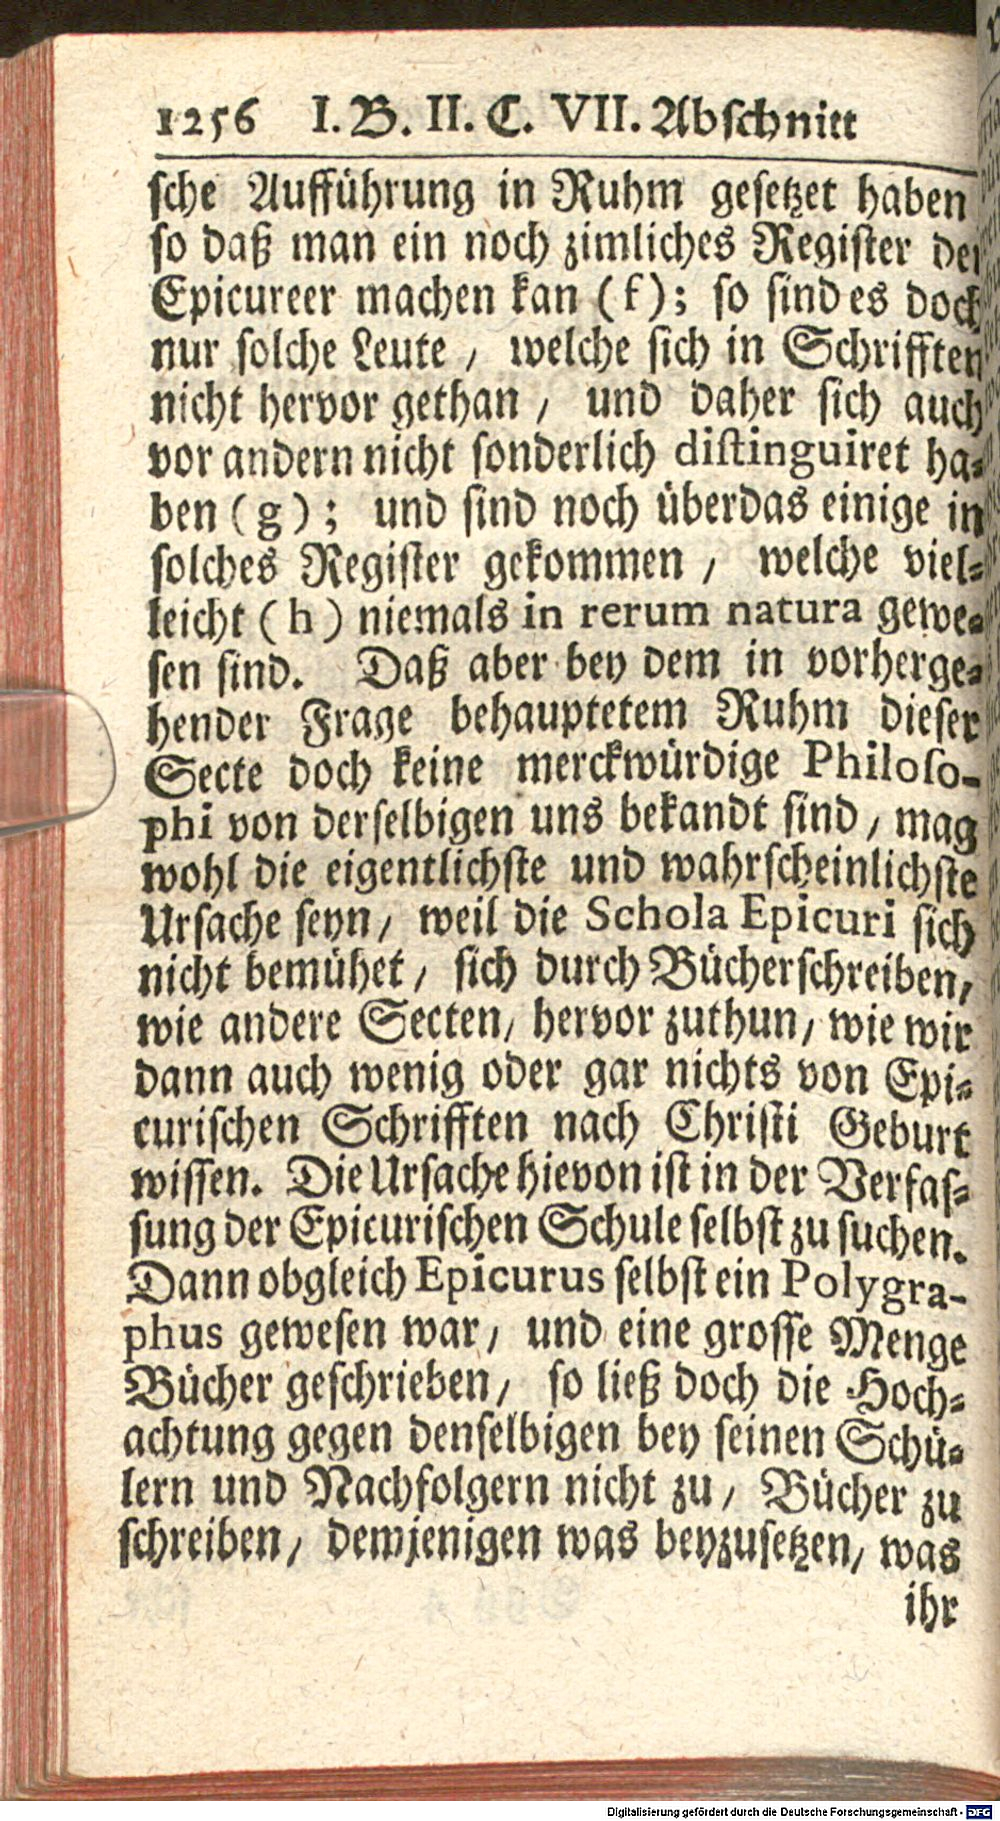 1256 I. B. II. C. VII. Abschnitt
sche Aufführung in Ruhm gesetzet haben
so daß man ein noch zimliches Register der
Epicureer machen kan (f); so sind es doch
nur solche Leute, welche sich in Schrifften
nicht hervor gethan, und daher sich auch
vor andern nicht sonderlich distinguiret ha-
ben (g); und sind noch überdas einige in
solches Register gekommen, welche viel-
leicht (h) niemals in rerum natura gewe-
sen sind. Daß aber bey dem in vorherge-
hender Frage behauptetem Ruhm dieser
Secte doch keine merckwürdige Philoso-
phi von derselbigen uns bekandt sind, mag
wohl die eigentlichste und wahrscheinlichste
Ursache seyn, weil die Schola Epicuri sich
nicht bemühet, sich durch Bücherschreiben,
wie andere Secten, hervor zuthun, wie wir
dann auch wenig oder gar nichts von Epi-
curischen Schrifften nach Christi Geburt
wissen. Die Ursache hievon ist in der Verfas-
sung der Epicurischen Schule selbst zu suchen.
Dann obgleich Epicurus selbst ein Polygra-
phus gewesen war, und eine grosse Menge
Bücher geschrieben, so ließ doch die Hoch-
achtung gegen denselbigen bey seinen Schü-
lern und Nachfolgern nicht zu, Bücher zu
schreiben, demjenigen was beyzusetzen, was
ihr
Digitalisierung gefördert durch die Deutsche Forschungsgemeinschaft - DFG